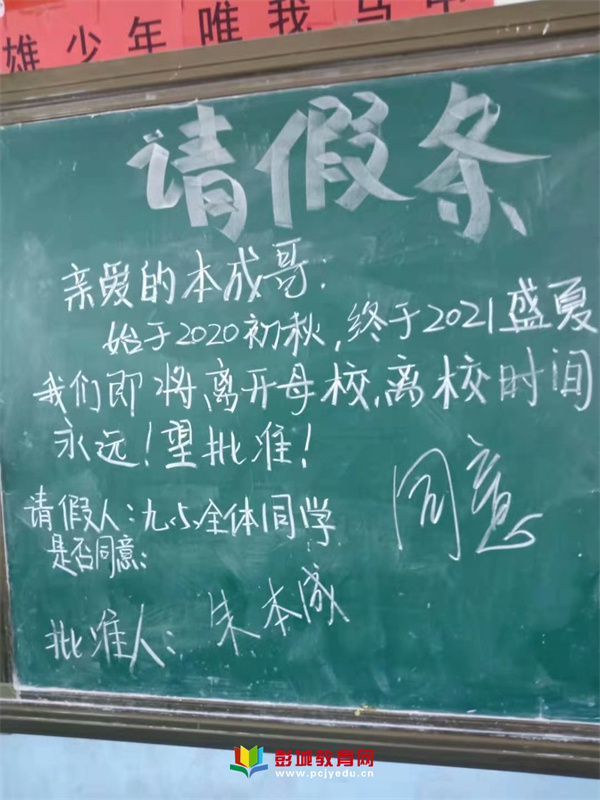 雄少年唯我
请假条
亲爱的本成哥:
始于2020初秋,终于2021盛夏
我们即将离开母校,离校时间
永远!望批准!
同意
请假人:九.5.全体同学
是否同意:
批准人:朱本成
彭城教育网
www.pcjyedu.cn